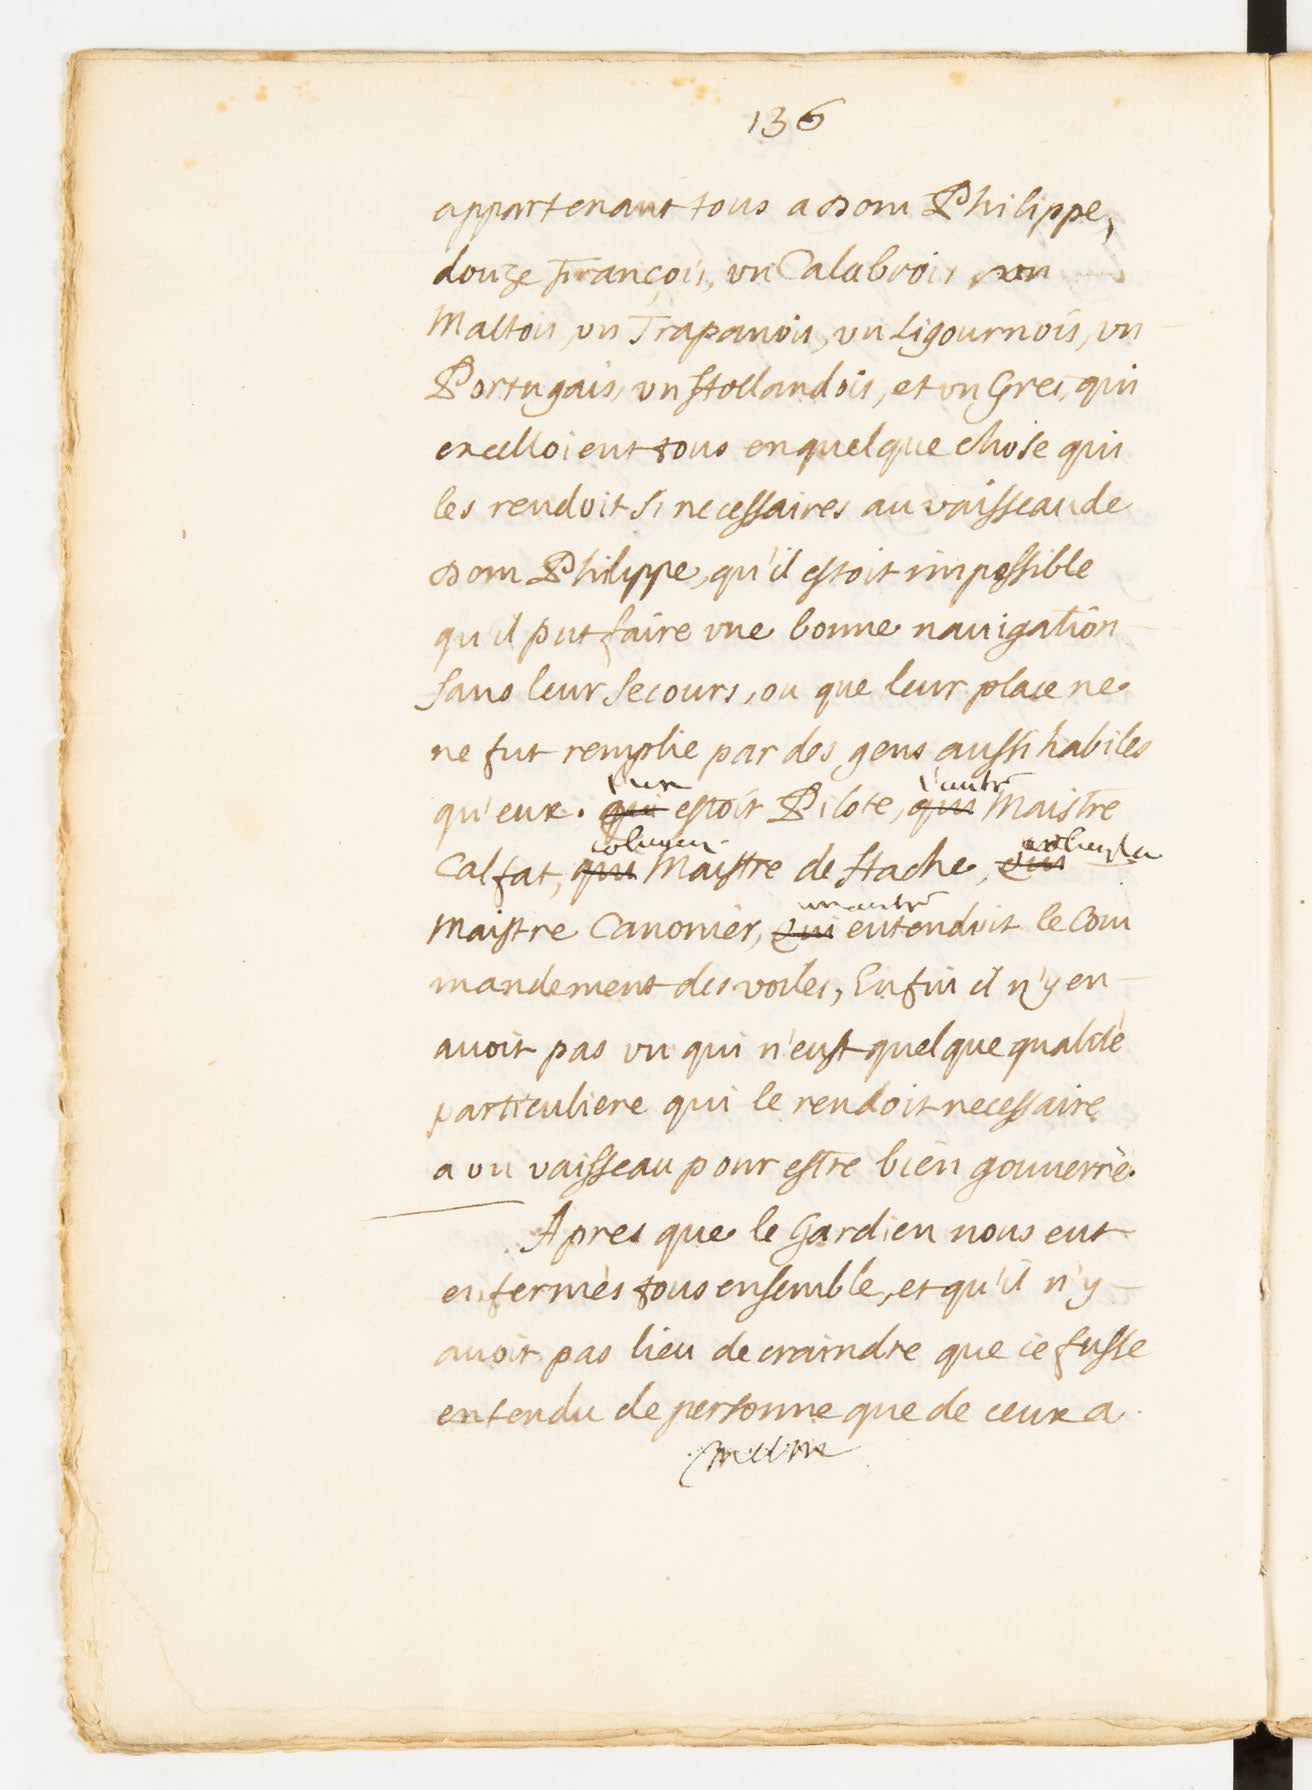 136
appartenant tous a Dom Philippe,
douze François, vn Calabrois, vn
Maltois, vn Trapanois, vn Ligournois, vn
Portugais, vn Hollandois, et vn Grec, qui
excelloient tous en quelque chose qui
les rendoit si necessaires au vaisseau de
Dom Philippe, qu'il estoit impossible
qu'il put faire vne bonne nauigation
sans leur secours, ou que leur place ne
ne fut remplie par des gens aussi habiles
l'un l'autre
qu'eux. qui estoit Pilote, qui Maistre
celuy cy
Calfat, qui Maistre de Hache, qui
un autre
Maistre Canonier, qui entendoit le Com
mandement des voiles, Enfin il n'y en
auoit pas vn qui n'eust quelque qualité
particuliere qui le rendoit necessaire
a vn vaisseau pour estre bien gouuerné.
Apres que le Gardien nous eut
enfermés tous ensemble, et qu'il n'y
auoit pas lieu de craindre que ie fusse
entendu de personne que de ceux a